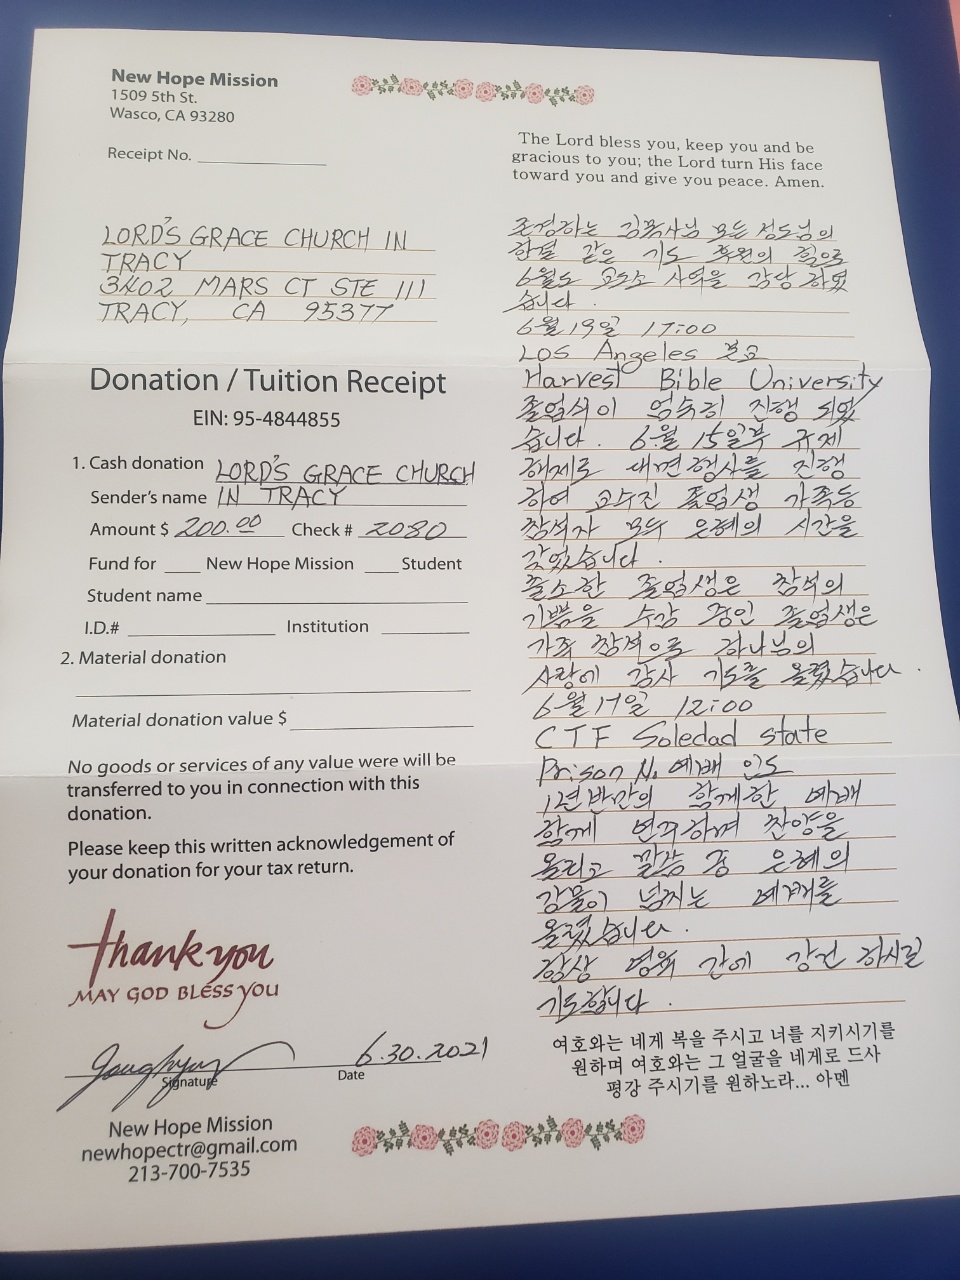 New Hope Mission
1509 5th St.
Wasco, CA 93280
Receipt No.
LORD'S GRACE CHURCH IN
TRACY
3402 MARS CT STE 111
TRACY, CA 95377
Donation / Tuition Receipt
EIN: 95-4844855
1. Cash donation LORD'S GRACE CHURCH
Sender's name IN TRACY
Amount $ 200.00 Check # 2080
Fund for ____ New Hope Mission ____ Student
Student name
I.D.# Institution
2. Material donation
Material donation value $
No goods or services of any value were will be
transferred to you in connection with this
donation.
Please keep this written acknowledgement of
your donation for your tax return.
Thank you
MAY GOD BLESS YOU
6.30.2021
Signature Date
New Hope Mission
newhopectr@gmail.com
213-700-7535
The Lord bless you, keep you and be
gracious to you; the Lord turn His face
toward you and give you peace. Amen.
존경하는 김목사님 모든 성도님의
한결 같은 기도 후원의 힘으로
6월도 교도소 사역을 감당 하였
습니다.
6월 19일 17:00
LOS Angeles 본교
Harvest Bible University
졸업식이 엄숙히 진행 되었
습니다. 6월 15일부 규제
해제로 대면 행사를 진행
하여 교수진 졸업생 가족등
참석자 모두 은혜의 시간을
갖었습니다.
출소한 졸업생은 참석의
기쁨을 수감 중인 졸업생은
가족 참석으로 하나님의
사랑에 감사 기도를 올렸습니다.
6월 17일 12:00
CTF Soledad state
Prison 예배 인도
1년반만의 함께한 예배
함께 연주하며 찬양을
올리고 말씀 중 은혜의
강물이 넘치는 예배를
올렸습니다.
항상 영육 간에 강건 하시길
기도합니다.
여호와는 네게 복을 주시고 너를 지키시기를
원하며 여호와는 그 얼굴을 네게로 드사
평강 주시기를 원하노라... 아멘